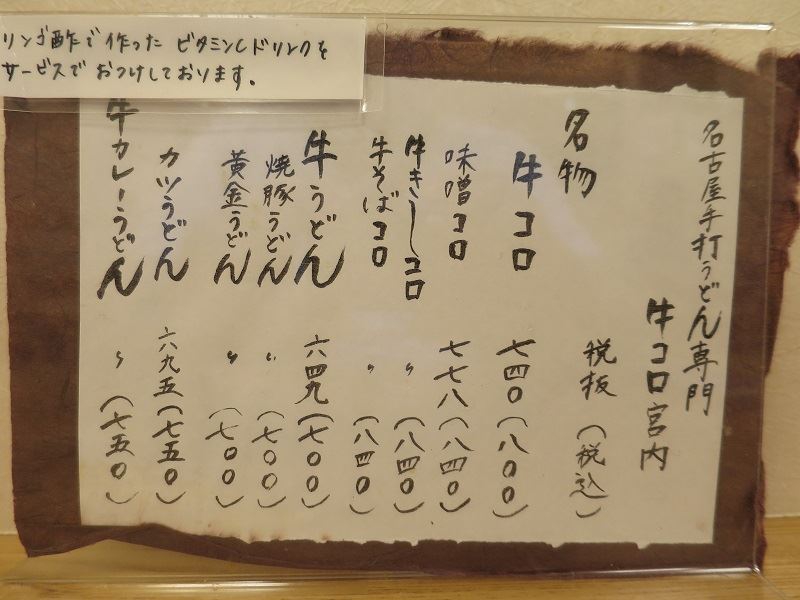 リンゴ酢で作った ビタミンCドリンクを
サービスで おつけしております。
名古屋手打うどん専門
牛コロ宮内
名物 税抜（税込）
牛コロ 七四〇（八〇〇）
味噌コロ 七七八（八四〇）
牛きしコロ 〃（八四〇）
牛そばコロ 〃（八四〇）
牛うどん 六四九（七〇〇）
焼豚うどん 〃（七〇〇）
黄金うどん 〃（七〇〇）
カツうどん 六九五（七五〇）
牛カレーうどん 〃（七五〇）